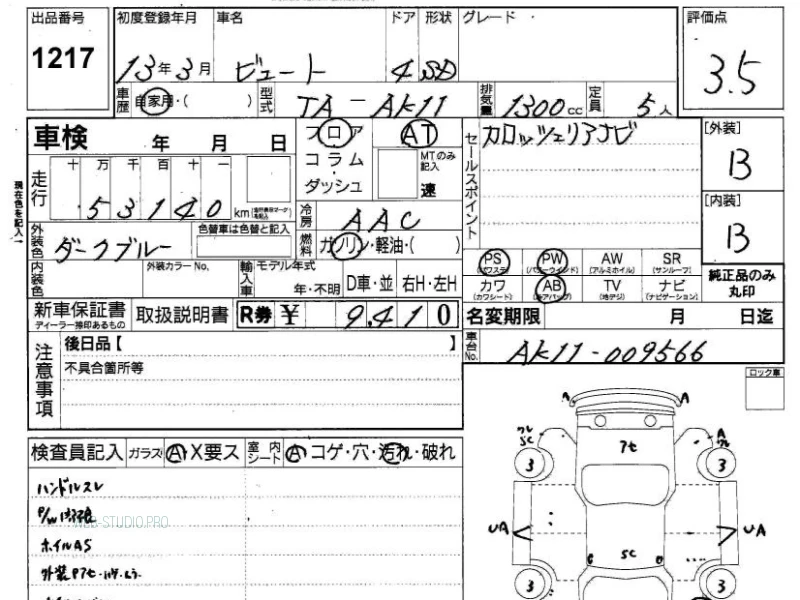 出品番号
1217
初度登録年月 車名 ドア 形状 グレード
13年3月 ビュート 4 SD
車歴 自家用・( ) 型式 TA-AK11 排気量 1300cc 定員 5人
評価点
3.5
車検 年 月 日
フロア
コラム
ダッシュ
AT
MTのみ記入
速
セールスポイント
カロッツェリアナビ
[外装]
B
[内装]
B
走行 十 万 千 百 十 一
53140 km
現在色を記入
冷房 AAC
燃料 ガソリン・軽油・( )
外装色 ダークブルー
色替車は色替と記入
内装色
外装カラーNo.
輸入車 モデル年式
年・不明 D車・並 右H・左H
PS PW AW SR
(パワステ) (パワーウインド) (アルミホイル) (サンルーフ)
カワ AB TV ナビ
(カワシート) (エアバッグ) (地デジ) (ナビゲーション)
純正品のみ
丸印
新車保証書
ディーラー捺印あるもの
取扱説明書 R券 ¥ 9,410
名変期限 月 日迄
車台No. AK11-009566
注意事項
後日品【 】
不具合箇所等
ロック車
検査員記入 ガラス A X要ス 室内シート A コゲ・穴・汚れ・破れ
ハンドルスレ
WEB-STUDIO.PRO
ホイルAS
A A
SC
アセ
A
3 3
UA UA
SC
3 3